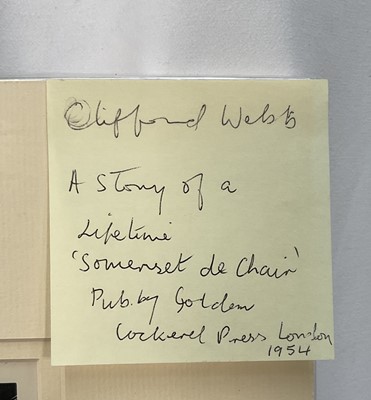 Clifford Webb
A Story of a
Lifetime
'Somerset de Chair'
Pub. by Golden
Cockerel Press London
1954